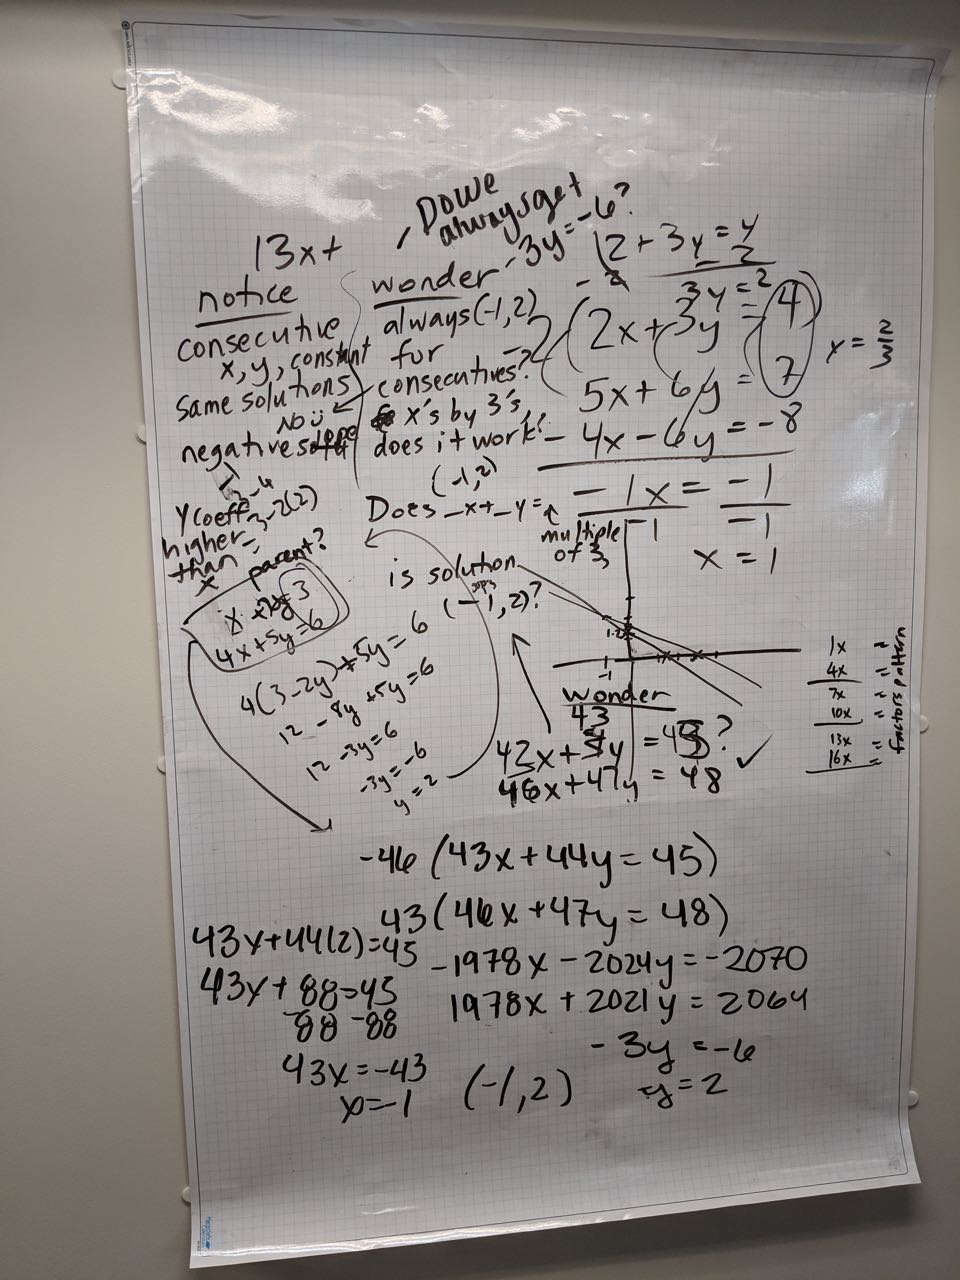 Do we
always get
-3y = -6?
13x+
notice
consecutive
x, y, constant
same solutions
No
negative slope
y coeff
higher
than
x
wonder
always (-1,2)
for
consecutives?
x's by 3's,
does it work?
(-1,2)
Does _x+_y=
multiple
of 3,
is solution
(-1,2)?
2+3y=4
3y=2
-2(2x+3y=4)
5x+6y=7
-4x-6y=-8
-1x=-1
-1 -1
x=1
x=2/3
parent?
x+2y=3
4x+5y=6
4(3-2y)+5y=6
12-8y+5y=6
12-3y=6
-3y=-6
y=2
wonder
43
46x+47y=48
1x =
4x =
7x =
10x =
13x =
16x =
factors pattern
-46(43x+44y=45)
43(46x+47y=48)
-1978x-2024y=-2070
1978x+2021y=2064
-3y=-6
y=2
43x+44(2)=45
43x+88=45
-88 -88
43x=-43
x=-1
(-1,2)